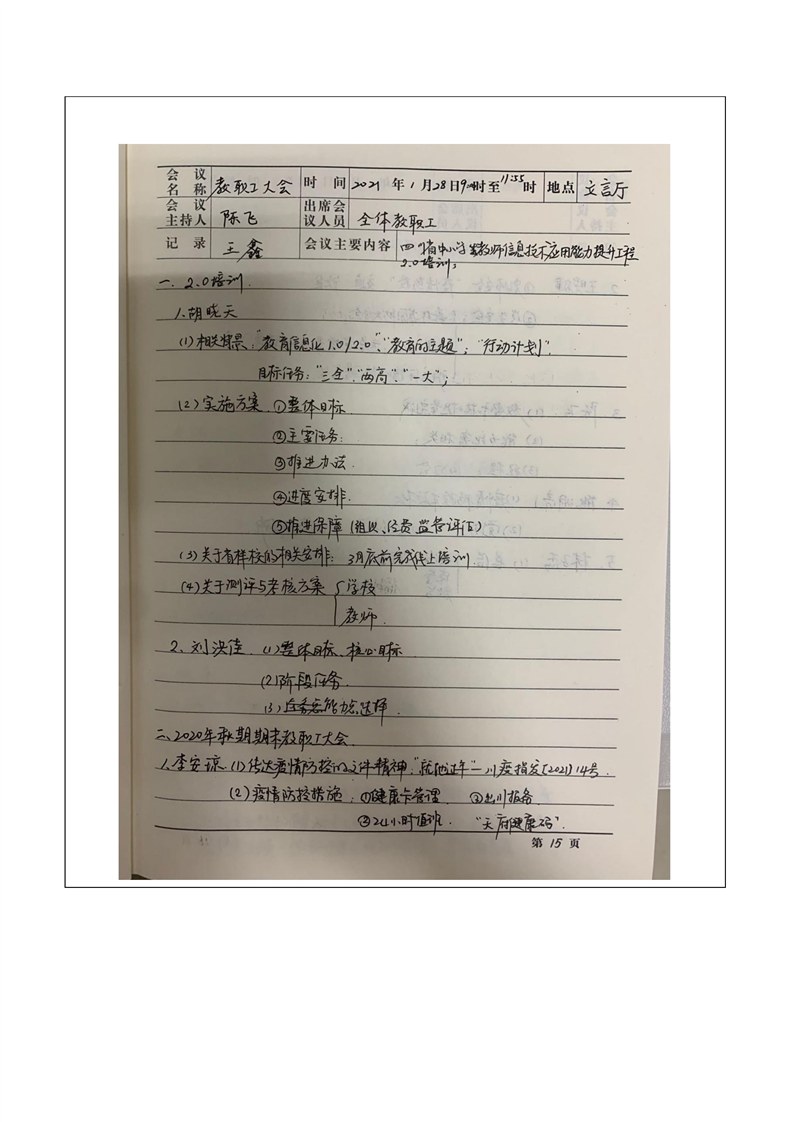 会议名称 教职工大会 时间 2021年1月28日9:00时至11:55时 地点 文言厅
会议主持人 陈飞 出席会议人员 全体教职工
记录 王鑫 会议主要内容 四川省中小学教师信息技术应用能力提升工程
2.0培训;
一、2.0培训.
1.胡晓天
(1)相关背景:"教育信息化1.0/2.0"、"教育的主题";"行动计划".
目标任务:"三全"、"两高"、"一大";
(2)实施方案.①整体目标.
②主要任务:
③推进办法.
④进度安排.
⑤推进保障(组织、经费、监管评估)
(3)关于学校的相关安排:3月底前完成线上培训.
(4)关于测评与考核方案{学校
教师.
2、刘洪佳.(1)整体目标、核心目标
(2)阶段任务.
(3)能力点选择.
二、2020年秋期期末教职工大会.
1.李安琼.(1)传达疫情防控的文件精神:"就地过年"—川疫指发[2021]14号.
(2)疫情防控措施:①健康卡管理 ②出川报备.
③24小时值班. "天府健康码".
第15页